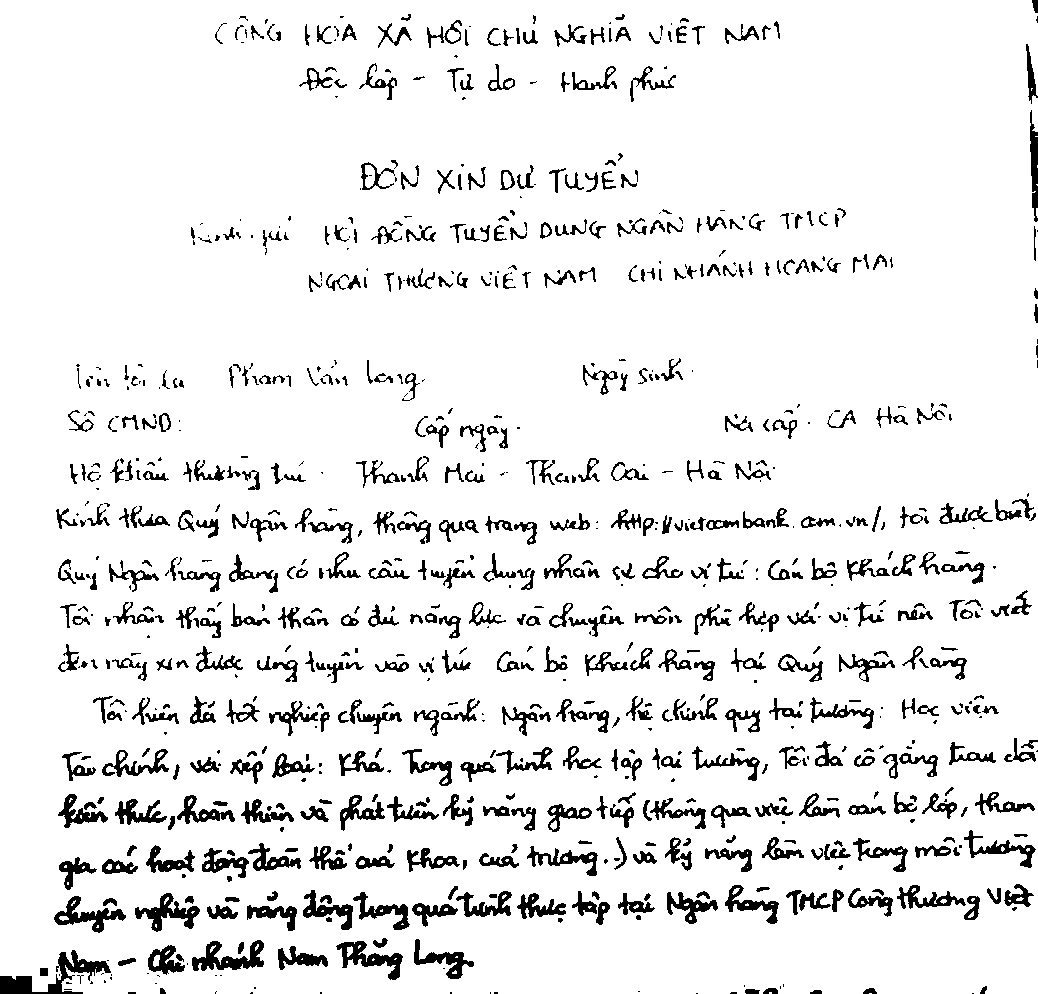 CỘNG HOÀ XÃ HỘI CHỦ NGHĨA VIỆT NAM
Độc lập - Tự do - Hạnh phúc
ĐƠN XIN DỰ TUYỂN
Kính gửi HỘI ĐỒNG TUYỂN DỤNG NGÂN HÀNG TMCP
NGOẠI THƯƠNG VIỆT NAM CHI NHÁNH HOÀNG MAI
Tên tôi là Phạm Văn Long Ngày sinh
Số CMND: Cấp ngày. Nơi cấp. CA Hà Nội
Hộ khẩu thường trú. Thanh Mai - Thanh Oai - Hà Nội
Kính thưa Quý Ngân hàng, thông qua trang web: http://vietcombank.com.vn/, tôi được biết,
Quý Ngân hàng đang có nhu cầu tuyển dụng nhân sự cho vị trí: Cán bộ Khách hàng.
Tôi nhận thấy bản thân có đủ năng lực và chuyên môn phù hợp với vị trí nên Tôi viết
đơn này xin được ứng tuyển vào vị trí Cán bộ Khách hàng tại Quý Ngân hàng
Tôi hiện đã tốt nghiệp chuyên ngành: Ngân hàng, hệ chính quy tại trường: Học viện
Tài chính, với xếp loại: Khá. Trong quá trình học tập tại trường, Tôi đã cố gắng trau dồi
kiến thức, hoàn thiện và phát triển kỹ năng giao tiếp (thông qua việc làm cán bộ lớp, tham
gia các hoạt động đoàn thể của khoa, của trường..) và kỹ năng làm việc trong môi trường
chuyên nghiệp và năng động trong quá trình thực tập tại Ngân hàng TMCP Công thương Việt
Nam - Chi nhánh Nam Thăng Long.